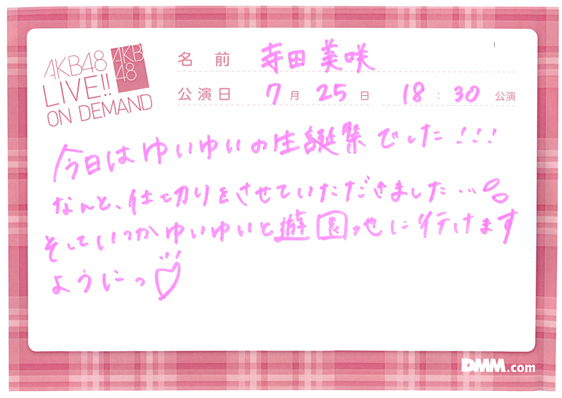 AKB48
LIVE!!
ON DEMAND
AKB
48
名前 寺田 美咲
公演日 7月 25日 18:30 公演
今日はゆいゆいの生誕祭でした!!!
なんと、仕切りをさせていただきました…
そしていつかゆいゆいと遊園地に行けます
ようにっ♡
DMM.com